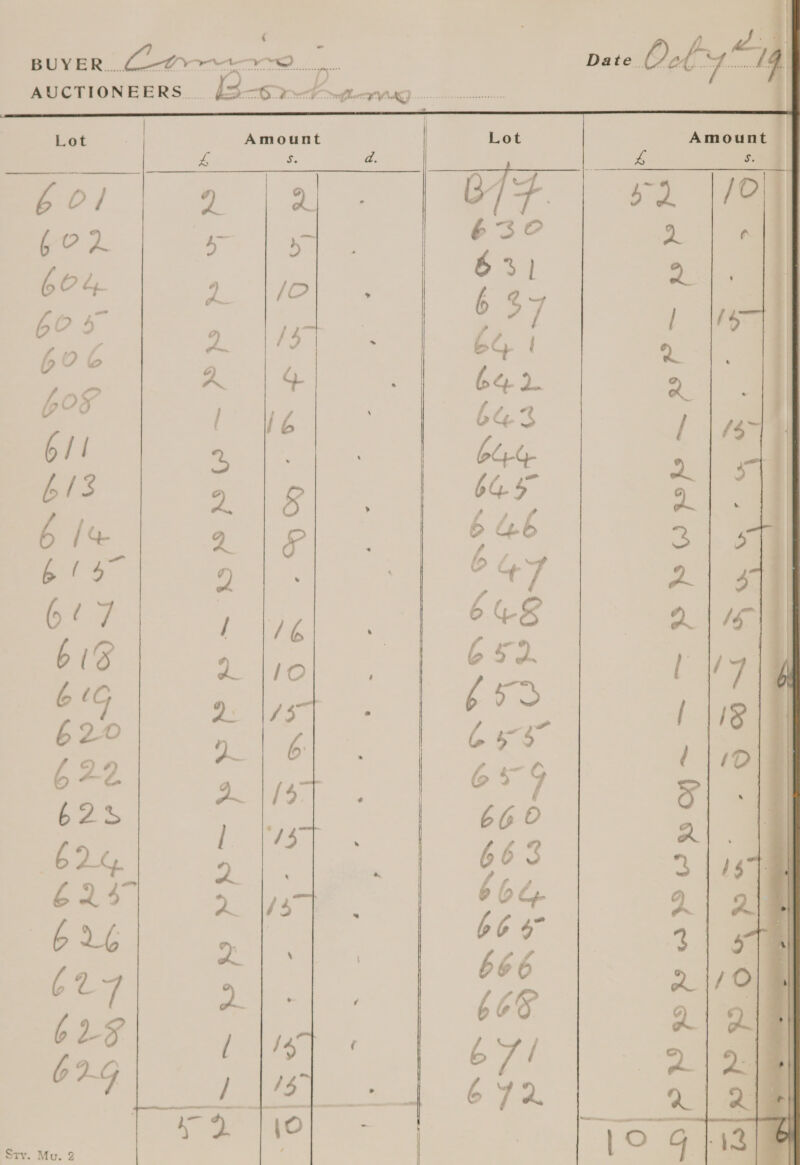 BUYER
Date Octr 7th 19
AUCTIONEERS
Lot Amount
£ s. d.
601 2 2 -
602 5 5 .
604 2 10 .
605 2 15 .
606 2 4 .
608 1 16 .
611 3 . .
613 2 8 .
614 2 8 .
615 2 .
617 1 16 .
618 2 10 .
619 2 15 .
620 2 6 .
622 2 15 .
623 1 15 .
624 2 . .
625 2 15 .
626 2 . .
627 2 . .
628 1 15 .
629 1 15 .
52 10 -
Lot Amount
£ s.
B/F. 52 10
630 2 .
631 2 .
637 1 15
641 2 .
642 2 .
643 1 15
644 2 5
645 2 .
646 3 5
647 2 5
648 2 15
652 1 17 6
653 1 18
655 1 10
659 8 .
660 2 .
663 3 15
664 2 2
665 3 5
666 2 10
668 2 2
671 2 2
672 2 2
109 13 6
Sty. Mu. 2